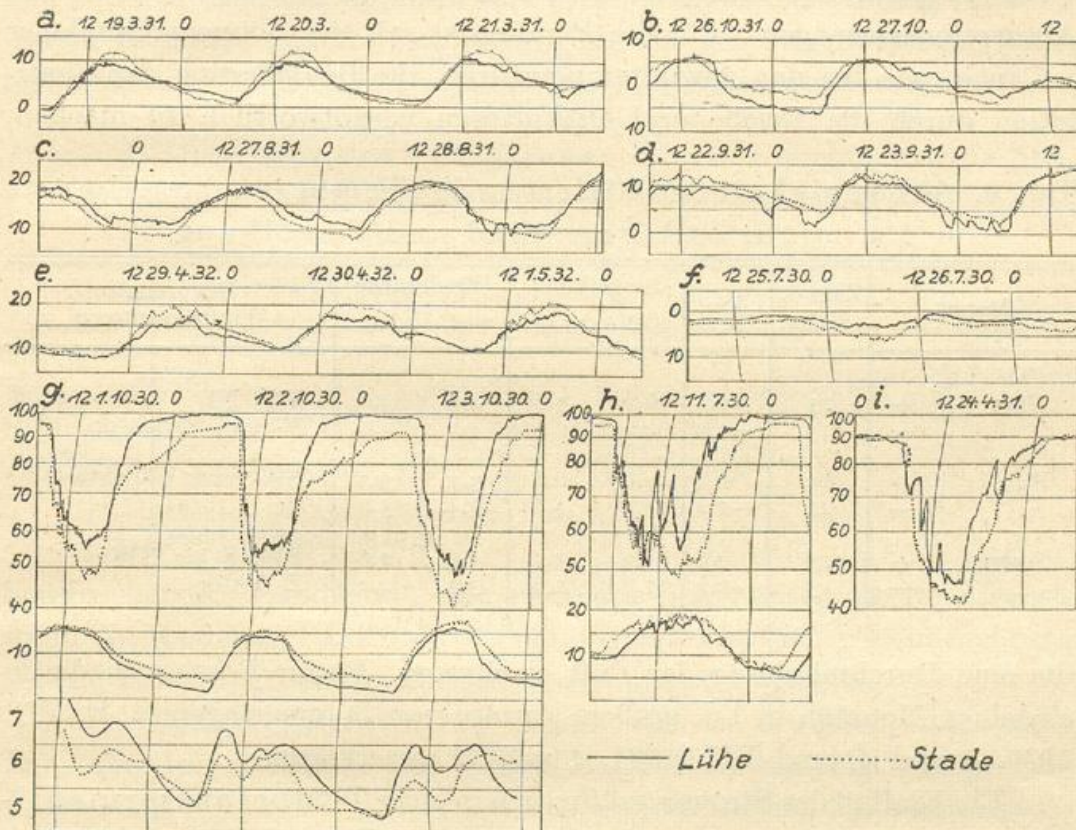 a. 12 19.3.31. 0 12 20.3. 0 12 21.3.31. 0
10
0
b. 12 26.10.31. 0 12 27.10. 0 12
10
0
10
c. 0 12 27.8.31. 0 12 28.8.31. 0
20
10
d. 12 22.9.31. 0 12 23.9.31. 0 12
10
0
e. 12 29.4.32. 0 12 30.4.32. 0 12 1.5.32. 0
20
10
f. 12 25.7.30. 0 12 26.7.30. 0
0
10
g. 12 1.10.30. 0 12 2.10.30 0 12 3.10.30. 0
100
90
80
70
60
50
40
10
7
6
5
h. 12 11.7.30 0
100
90
80
70
60
50
20
10
i. 0 12 24.4.31. 0
100
90
80
70
60
50
40
Lühe Stade